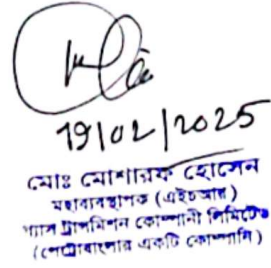 19/02/2025
মোঃ মোশাররফ হোসেন
মহাব্যবস্থাপক (এইচআর)
গ্যাস ট্রান্সমিশন কোম্পানী লিমিটেড
(পেট্রোবাংলার একটি কোম্পানি)